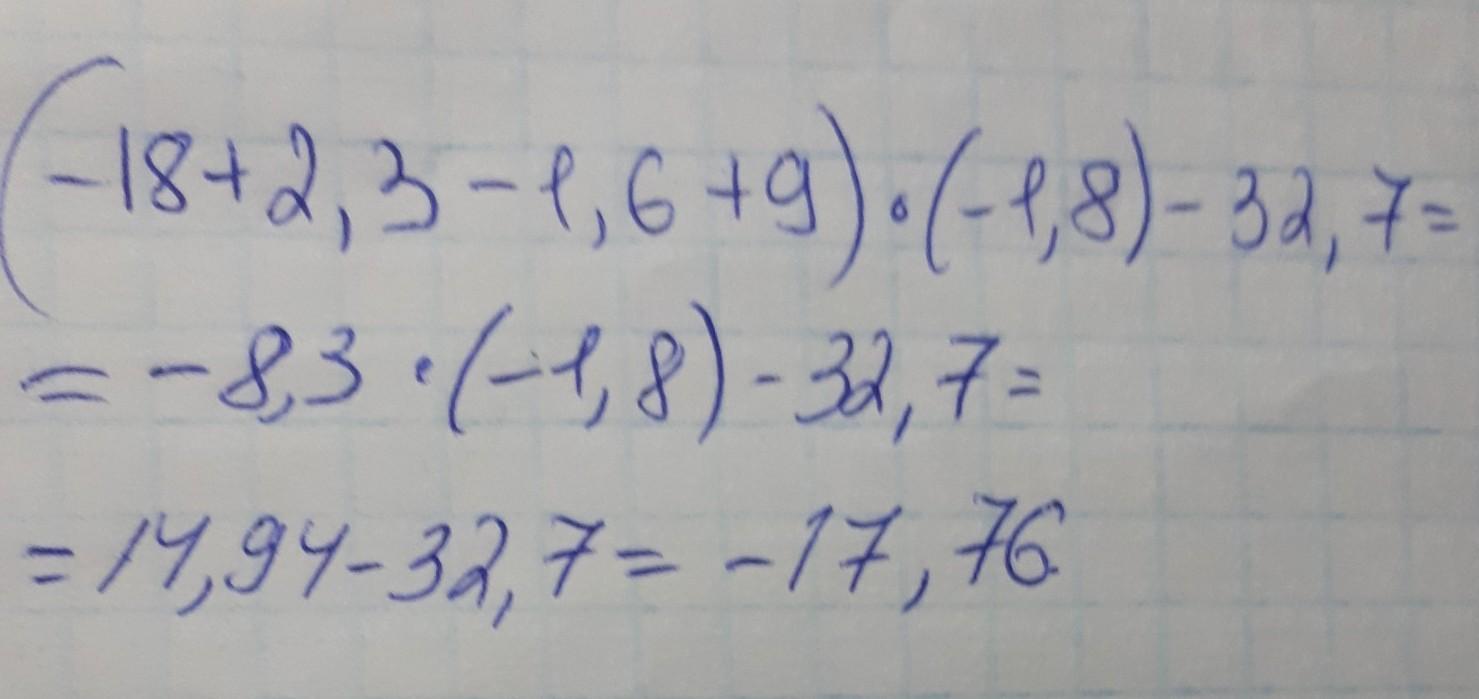 (-18+2,3-1,6+9)·(-1,8)-32,7=
=-8,3·(-1,8)-32,7=
=14,94-32,7=-17,76